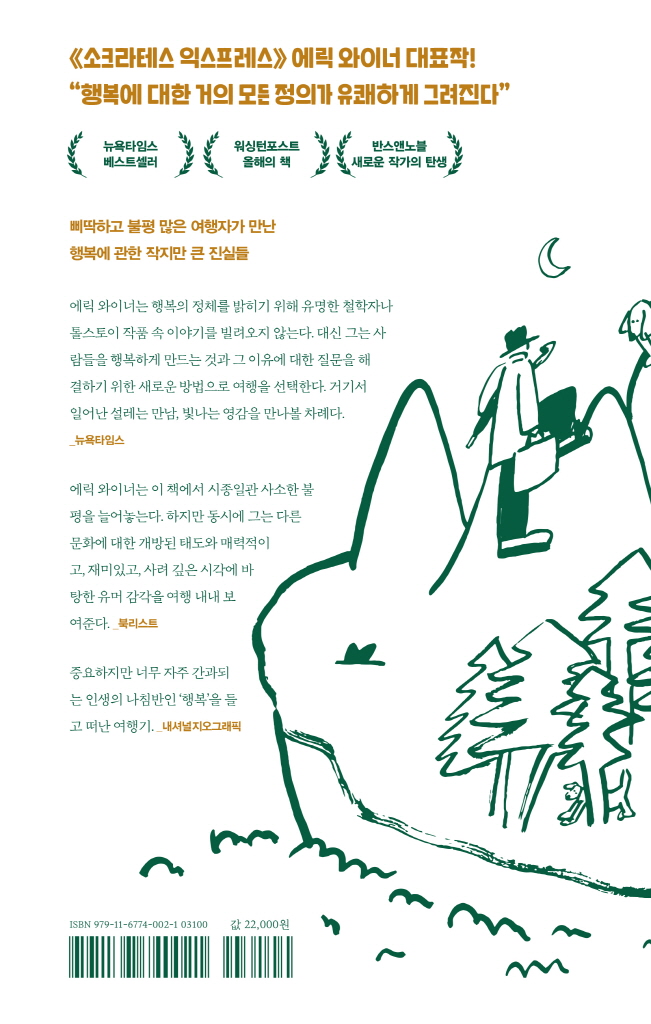 《소크라테스 익스프레스》 에릭 와이너 대표작!
“행복에 대한 거의 모든 정의가 유쾌하게 그려진다”
뉴욕타임스
베스트셀러
워싱턴포스트
올해의 책
반스앤노블
새로운 작가의 탄생
삐딱하고 불평 많은 여행자가 만난
행복에 관한 작지만 큰 진실들
에릭 와이너는 행복의 정체를 밝히기 위해 유명한 철학자나
톨스토이 작품 속 이야기를 빌려오지 않는다. 대신 그는 사
람들을 행복하게 만드는 것과 그 이유에 대한 질문을 해
결하기 위한 새로운 방법으로 여행을 선택한다. 거기서
일어난 설레는 만남, 빛나는 영감을 만나볼 차례다.
_뉴욕타임스
에릭 와이너는 이 책에서 시종일관 사소한 불
평을 늘어놓는다. 하지만 동시에 그는 다른
문화에 대한 개방된 태도와 매력적이
고, 재미있고, 사려 깊은 시각에 바
탕한 유머 감각을 여행 내내 보
여준다. _북리스트
중요하지만 너무 자주 간과되
는 인생의 나침반인 ‘행복’을 들
고 떠난 여행기. _내셔널지오그래픽
ISBN 979-11-6774-002-1 03100 값 22,000원